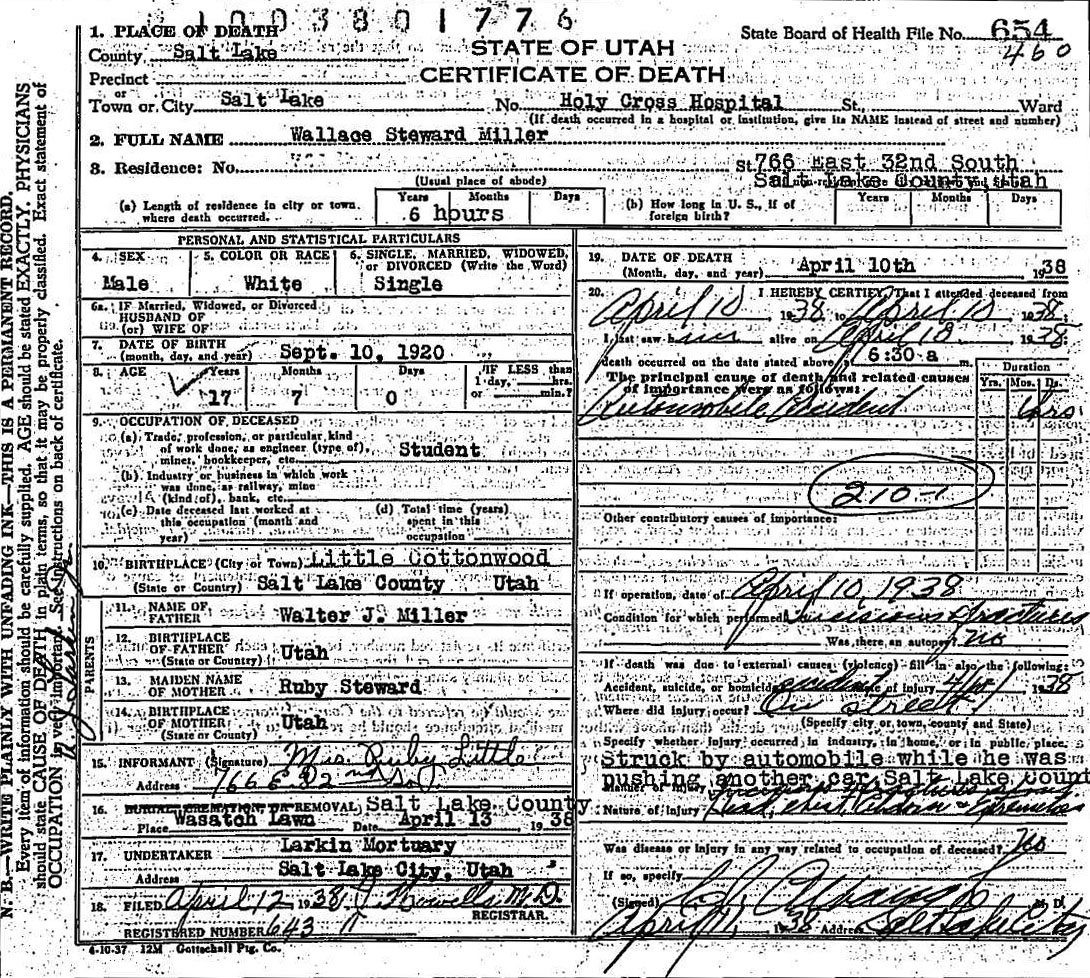 2 1 0 0 3 8 0 1 7 7 6
1. PLACE OF DEATH
County, Salt Lake
STATE OF UTAH
CERTIFICATE OF DEATH
State Board of Health File No. 654
460
Precinct
or
Town or City Salt Lake No. Holy Cross Hospital St. Ward
(If death occurred in a hospital or institution, give its NAME instead of street and number)
2. FULL NAME Wallace Steward Miller
3. Residence: No. St. 766 East 32nd South
Salt Lake County, Utah
(Usual place of abode)
(a) Length of residence in city or town where death occurred.
Years Months Days
6 hours
(b) How long in U. S., if of foreign birth?
Years Months Days
PERSONAL AND STATISTICAL PARTICULARS
4. SEX 5. COLOR OR RACE 6. SINGLE, MARRIED, WIDOWED, or DIVORCED (Write the Word)
Male White Single
6a. IF Married, Widowed, or Divorced
HUSBAND OF
(or) WIFE OF
7. DATE OF BIRTH
(month, day, and year) Sept. 10, 1920
8. AGE Years Months Days IF LESS than 1 day, hrs. or min.?
17 7 0
9. OCCUPATION OF DECEASED
(a) Trade, profession, or particular kind
of work done, as engineer (type of), Student
miner, bookkeeper, etc.
(b) Industry or business in which work
was done, as railway, mine
(kind of), bank, etc.
(c) Date deceased last worked at this occupation (month and year)
(d) Total time (years) spent in this occupation
10. BIRTHPLACE (City or Town) Little Cottonwood
(State or Country) Salt Lake County Utah
PARENTS
11. NAME OF FATHER Walter J. Miller
12. BIRTHPLACE OF FATHER Utah
(State or Country)
13. MAIDEN NAME OF MOTHER Ruby Steward
14. BIRTHPLACE OF MOTHER Utah
(State or Country)
15. INFORMANT (Signature) Mrs. Ruby Little
Address 766 E 32nd So.
16. BURIAL, CREMATION, OR REMOVAL Salt Lake County
Place Wasatch Lawn Date April 13 1938
17. UNDERTAKER Larkin Mortuary
Address Salt Lake City, Utah
18. FILED April 12 1938 Howells M.D.
REGISTRAR.
REGISTERED NUMBER 643
4-10-37 12M Gottschall Ptg. Co.
19. DATE OF DEATH
(Month, day, and year) April 10th 1938
20. I HEREBY CERTIFY, That I attended deceased from
April 10 1938 to April 10 1938
I last saw him alive on April 10 1938
death occurred on the date stated above 6:30 a m.
The principal cause of death and related causes
of importance were as follows:
Duration
Yrs. Mos. Ds.
Automobile Accident hrs
210-1
Other contributory causes of importance:
If operation, date of April 10, 1938
Condition for which performed Fractures
Was there an autopsy? no
If death was due to external causes (violence) fill in also the following:
Accident, suicide, or homicide accident Date of injury 4/10/ 1938
Where did injury occur? On street
(Specify city or town, county and State)
Specify whether injury occurred in industry, in home, or in public place.
Struck by automobile while he was
pushing another car Salt Lake Coun
Manner of Injury
Nature of injury Head, chest
Was disease or injury in any way related to occupation of deceased? No
If so, specify
(Signed) M. D.
April 11, 1938 Address Salt Lake City
N. B.—WRITE PLAINLY WITH UNFADING INK—THIS IS A PERMANENT RECORD.
Every item of information should be carefully supplied. AGE should be stated EXACTLY. PHYSICIANS
should state CAUSE OF DEATH in plain terms, so that it may be properly classified. Exact statement of
OCCUPATION is very important. See instructions on back of certificate.